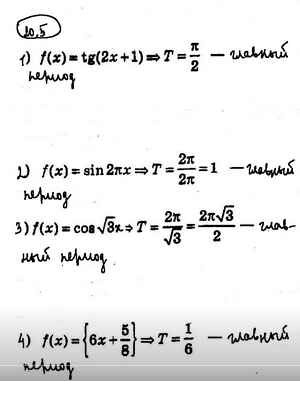 20.5
1) f(x) = tg(2x+1) ⇒ T = π/2 — главный
период
2) f(x) = sin2πx ⇒ T = 2π/2π = 1 — главный
период
3) f(x) = cos√3x ⇒ T = 2π/√3 = 2π√3/2 — глав-
ный период
4) f(x) = {6x + 5/8} ⇒ T = 1/6 — главный
период